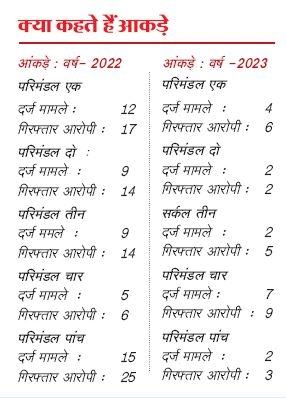 क्या कहते हैं आकड़े
आंकड़े : वर्ष- 2022
परिमंडल एक
दर्ज मामले : 12
गिरफ्तार आरोपी : 17
परिमंडल दो :
दर्ज मामले : 9
गिरफ्तार आरोपी : 14
परिमंडल तीन
दर्ज ममले : 9
गिरफ्तार आरोपी : 14
परिमंडल चार
दर्ज मामले : 5
गिरफ्तार आरोपी : 6
परिमंडल पांच
दर्ज मामले : 15
गिरफ्तार आरोपी : 25
आंकड़े : वर्ष -2023
परिमंडल एक
दर्ज मामले : 4
गिरफ्तार आरोपी : 6
परिमंडल दो
दर्ज मामले : 2
गिरफ्तार आरोपी : 2
सर्कल तीन
दर्ज मामले : 2
गिरफ्तार आरोपी : 5
परिमंडल चार
दर्ज मामले : 7
गिरफ्तार आरोपी : 9
परिमंडल पांच
दर्ज मामले : 2
गिरफ्तार आरोपी : 3